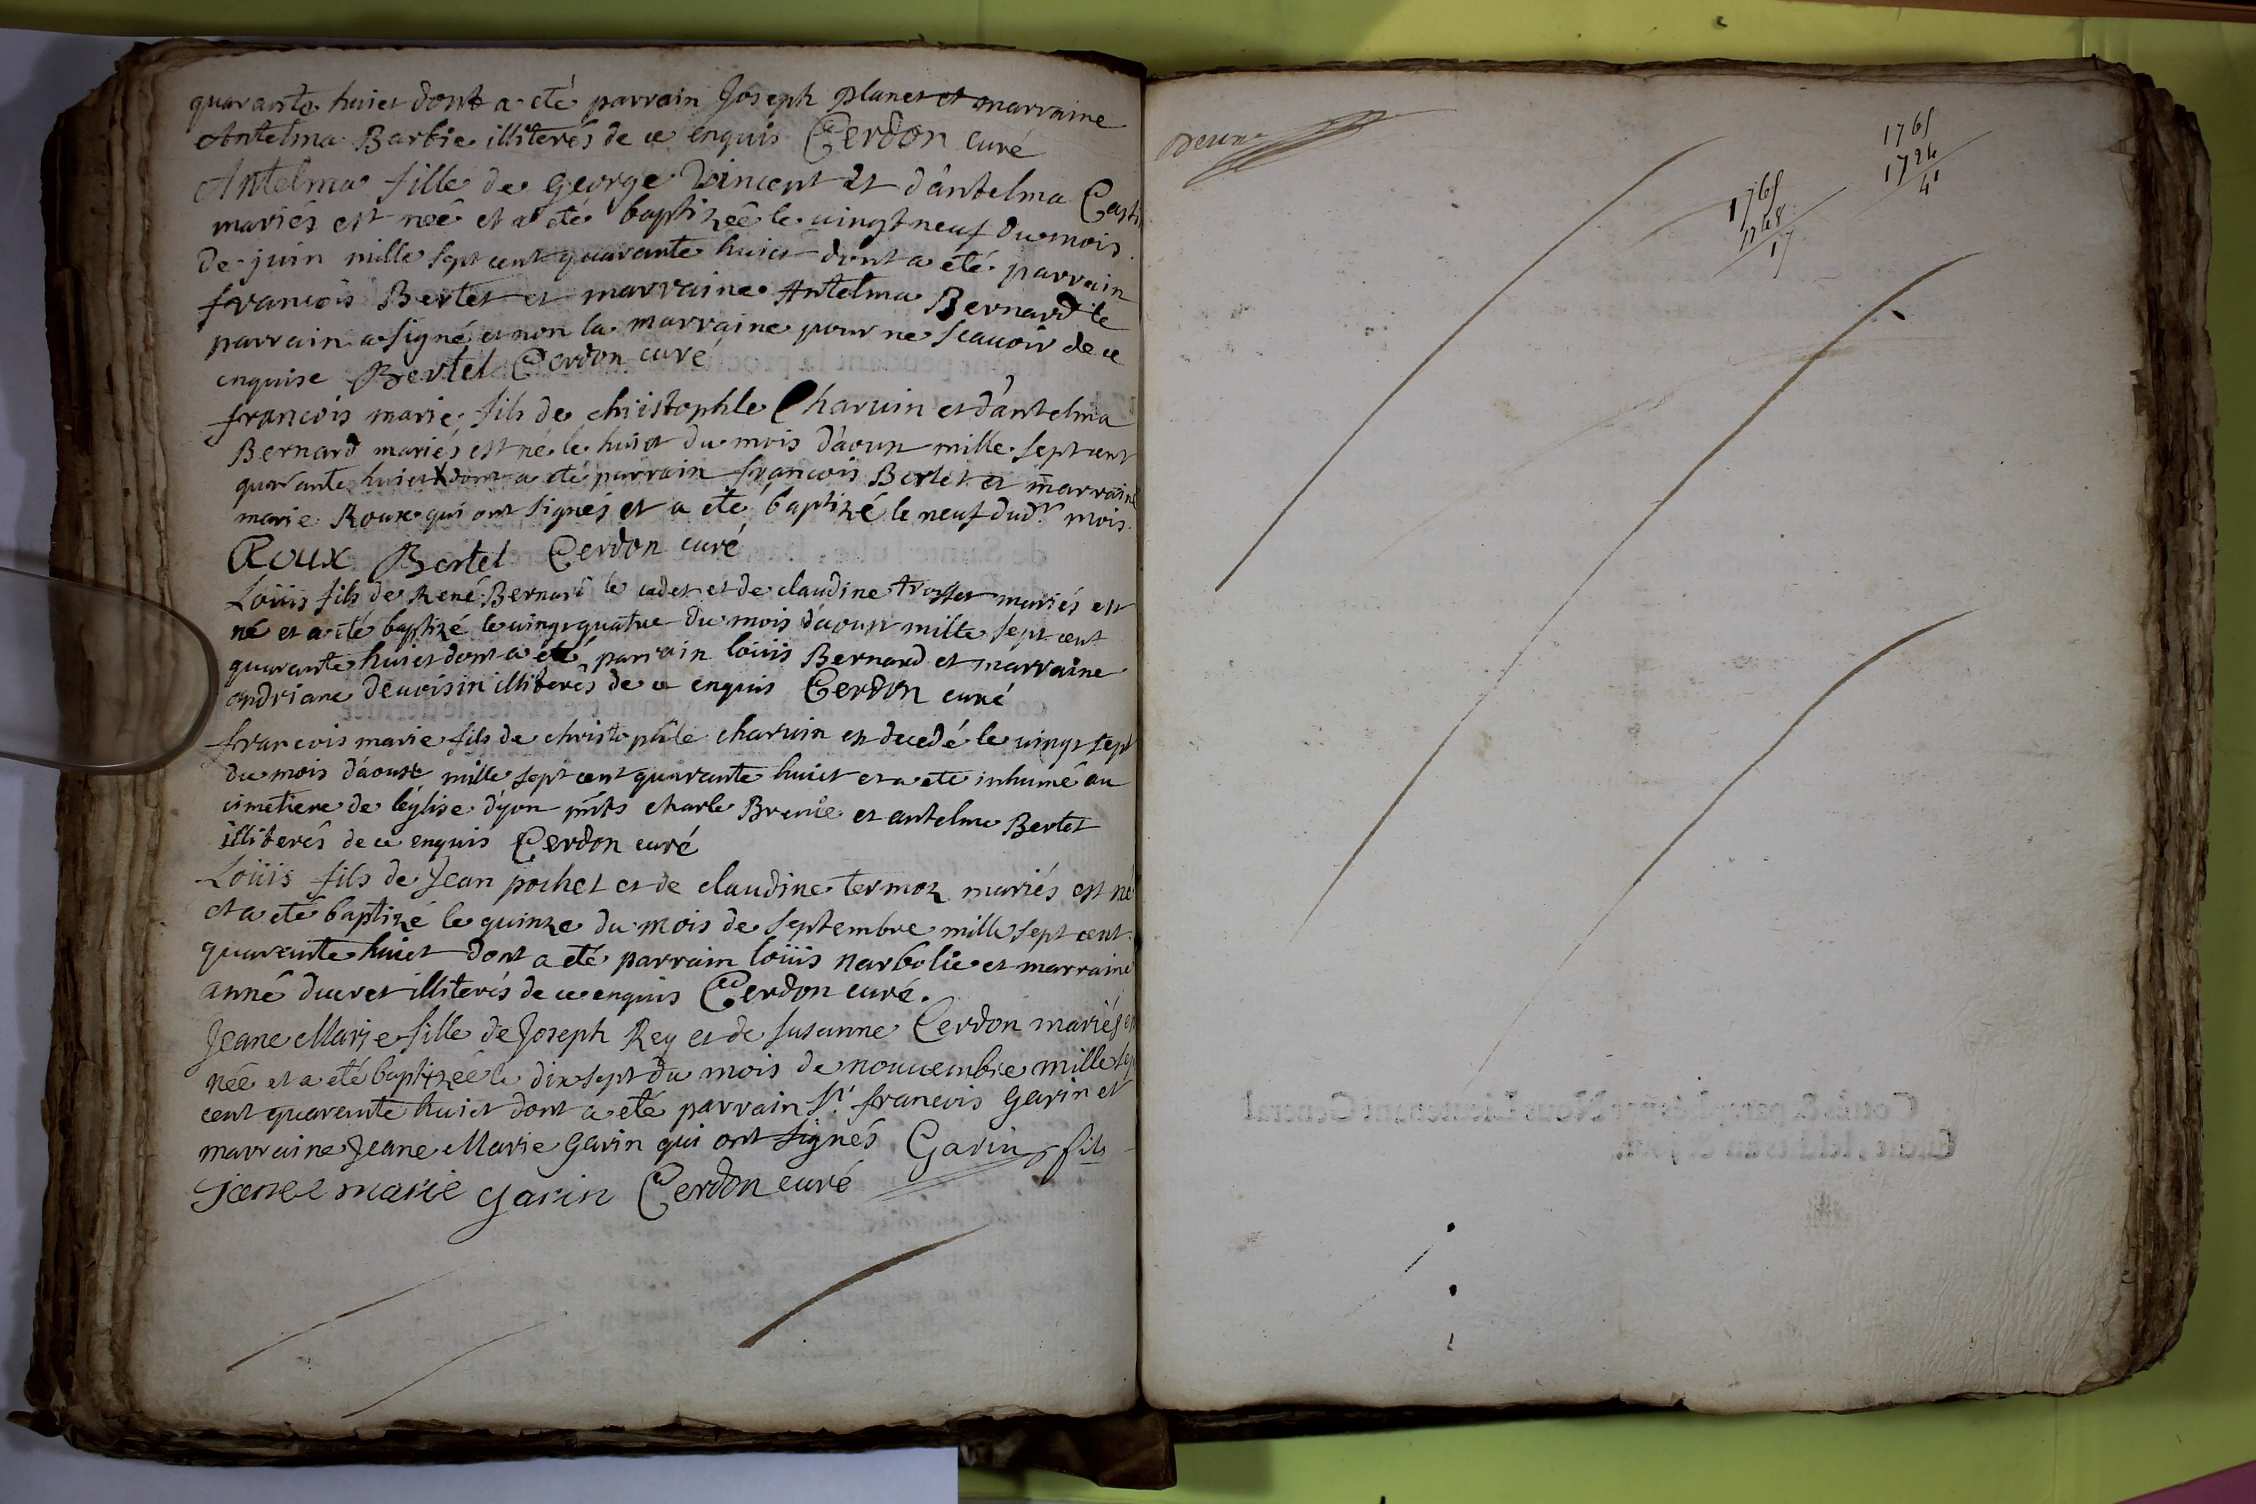 quarante huict dont a eté parrain Joseph planet et marraine
Antelma Barbie illiterés de ce enquis Cerdon curé
Antelma fille de george Vincent et d'antelma
mariés est neé et a eté baptizeé le vingt neuf du mois
de juin mille sept cent quarante huict dont a eté parrain
francois Bertet et marraine Antelma Bernard le
parrain a signé et non la marraine pour ne scavoir de ce
enquise Bertel Cerdon curé
francois marie fils de christophle Charvin et d'antelma
Bernard mariés est né le huict du mois d'aoust mille sept cent
quarante huict dont a eté parrain francois Bertet et marraine
marie Roux qui ont signés et a eté baptizé le neuf dud.t mois
Roux Bertel Cerdon curé
Loüis fils de René Bernard le cadet et de claudine trosset mariés est
né et a eté baptizé le vingt quatre du mois d'aoust mille sept cent
quarante huict dont a eté parrain loüis Bernard et marraine
andriane devoisin illiterés de ce enquis Cerdon curé
francois marie fils de christophle charvin est decedé le vingt sept
du mois d'aoust mille sept cent quarante huict et a eté inhumé au
cimetiere de léglise d'yon pnts charle et antelme Bertet
illiterés de ce enquis Cerdon curé
Loüis fils de Jean pochet et de claudine termoz mariés est né
et a eté baptizé le quinze du mois de septembre mille sept cent
quarante huict dont a eté parrain loüis narbolie et marraine
anne ducret illiterés de ce enquis Cerdon curé.
Jeane Marie fille de Joseph Rey et de susanne Cerdon mariés est
née et a eté baptizeé le dix sept du mois de nouvembre mille sept
cent quarante huict dont a eté parrain Sr francois Garin et
marraine Jeane Marie Garin qui ont signés Garin fils
jeanee marie garin Cerdon curé
1765
1748
17
1765
1724
41